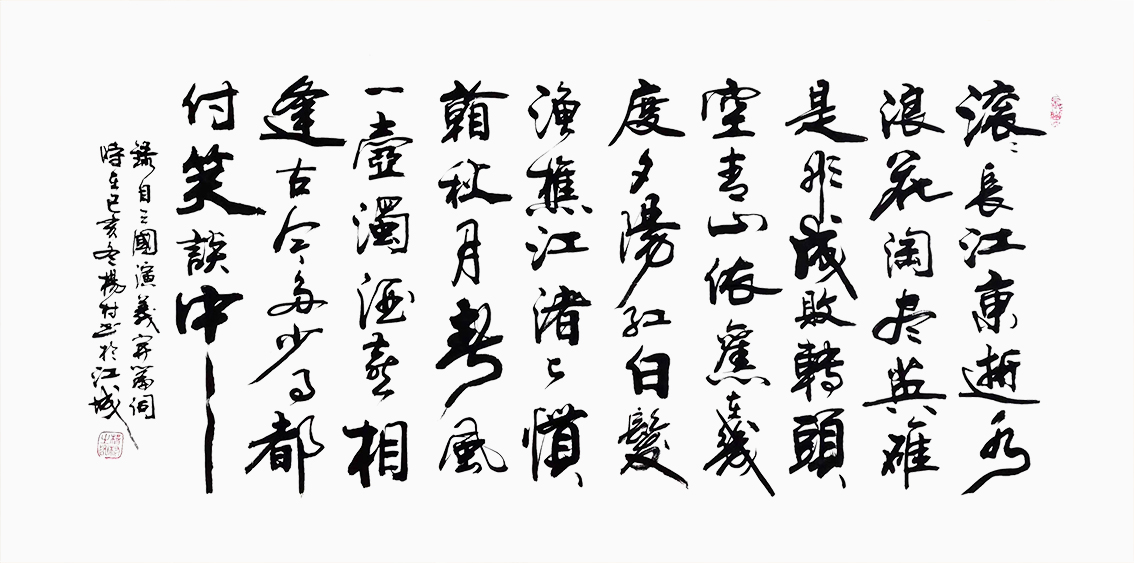 滚〻長江東逝水
浪花淘尽英雄
是非成敗轉頭
空青山依舊在幾
度夕陽紅白髮
漁樵江渚上慣
看秋月春風
一壺濁酒喜相
逢古今多少事都
付笑談中
錄自三國演義開篇詞
時在己亥冬楊村書於江城